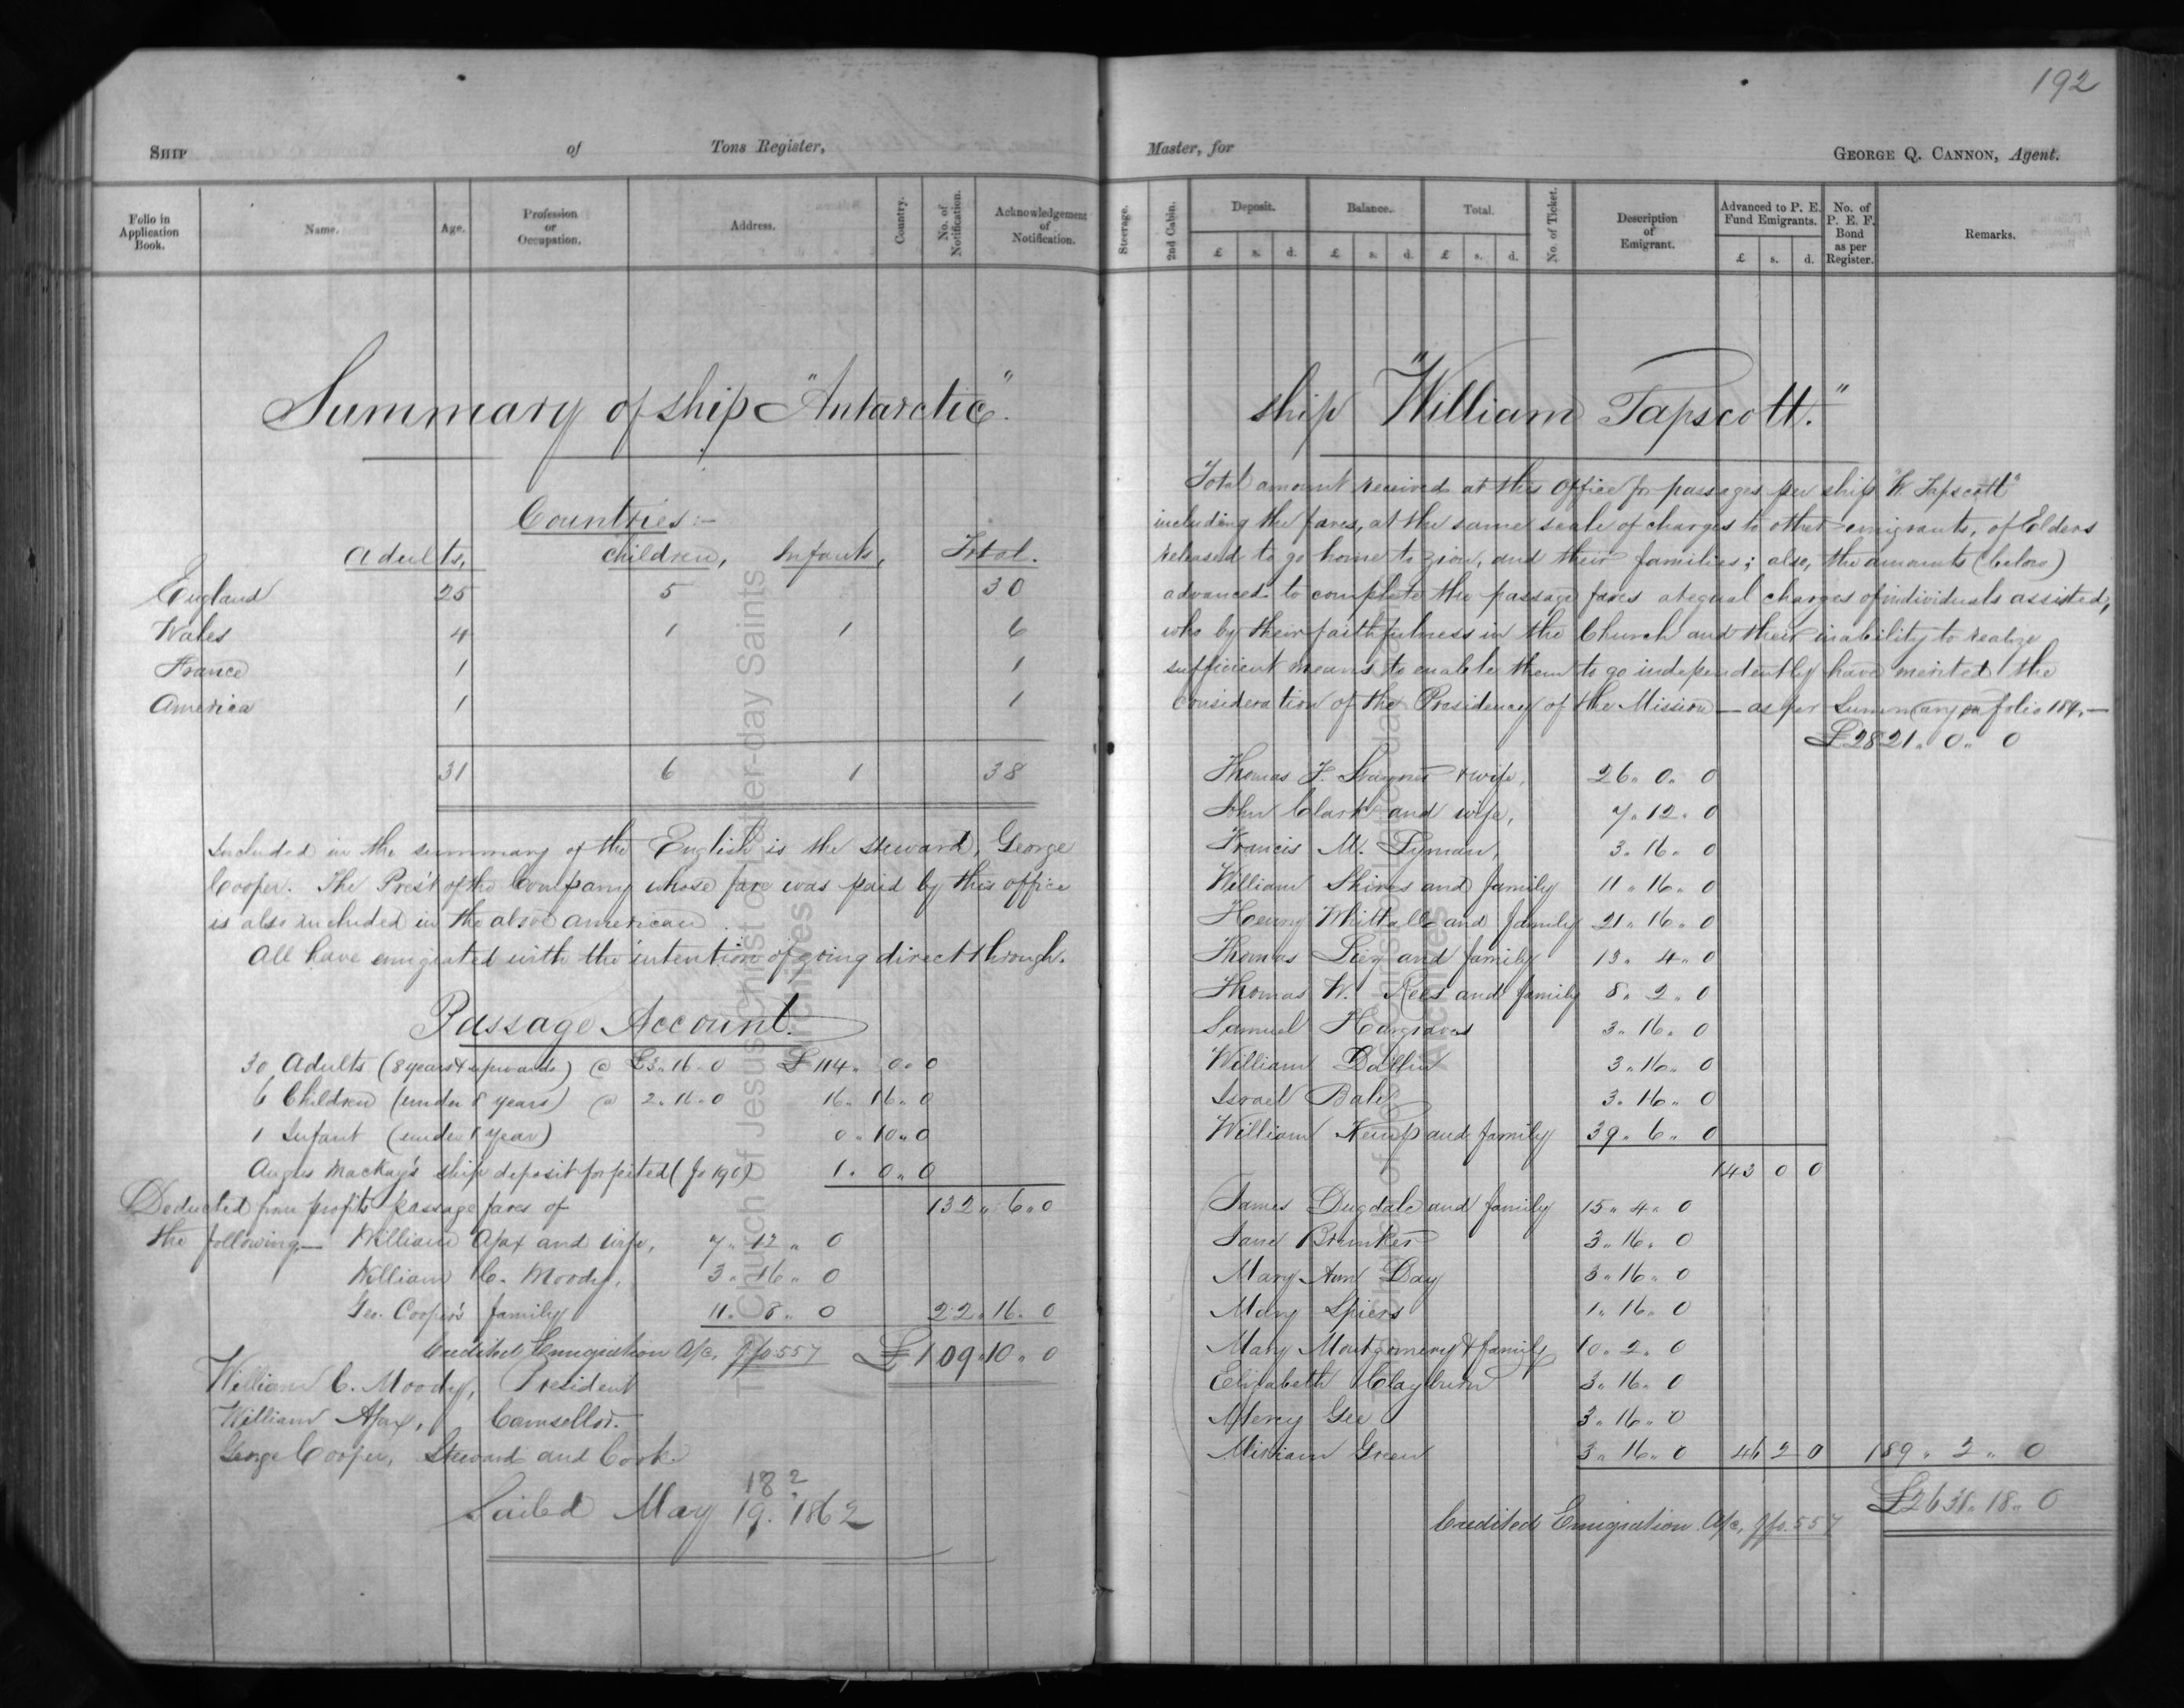 192
SHIP of Tons Register,
Folio in Application Book. Name. Age. Profession or Occupation. Address. Country. No. of Notification. Acknowledgement of Notification.
Summary of ship "Antarctic".
Countries:-
Adults, Children, Infants, Total.
England 25 5 30
Wales 4 1 1 6
France 1 1
America 1 1
31 6 1 38
Included in the summary of the English is the steward, George
Cooper. The Prest of the Company whose fare was paid by this office
is also included in the above american
All have emigrated with the intention of going direct through.
Passage Account.
30 Adults (8 years & upwards) @ £3.16.0 £114.0.0
6 Children (under 8 years) @ 2.16.0 16.16.0
1 Infant (under 1 year) 0.10.0
Angus Mackay's ship deposit forfeited (fo 190) 1.0.0
Deducted from profits passage fares of 132.6.0
the following,— William Ajax and wife, 7.12.0
William C. Moody, 3.16.0
Geo. Cooper's family 11.8.0 22.16.0
Credited Emigration A/c, 557 £109.10.0
William C. Moody, President
William Ajax, Counsellor.
George Cooper, Steward and Cook.
18?
Sailed May 19. 1862
Master, for GEORGE Q. CANNON, Agent.
Steerage. 2nd Cabin. Deposit. £ s. d. Balance. £ s. d. Total. £ s. d. No. of Ticket. Description of Emigrant. Advanced to P. E. Fund Emigrants. £ s. d. No. of P. E. F. Bond as per Register. Remarks.
ship "William Tapscott."
Total amount received at this office for passages per ship "W. Tapscott"
including the fares, at the same scale of charges to other emigrants, of Elders
released to go home to Zion, and their families; also, the amounts (below)
advanced to complete the passage fares at equal charges of individuals assisted,
who by their faithfulness in the Church and their inability to realize
sufficient means to enable them to go independently have merited the
consideration of the Presidency of the Mission — as per Summary on folio 189,—
£2821.0.0
Thomas J. & wife, 26.0.0
John Clark and wife, 7.12.0
Francis M. Lyman, 3.16.0
William Shires and family 11.16.0
Henry Whittall and family 21.16.0
Thomas and family 13.4.0
Thomas W. Rees and family 8.2.0
Samuel Hargraves 3.16.0
William Dallin 3.16.0
Israel Bale 3.16.0
William Kemp and family 39.6.0
143 0 0
James Dugdale and family 15.4.0
Jane Brunker 3.16.0
Mary Ann Day 3.16.0
Mary Spiers 1.16.0
Mary Montgomery & family 10.2.0
Elizabeth Clayburn 3.16.0
Mercy Gee 3.16.0
Miriam Green 3.16.0 46 2 0 189.2.0
£2631.18.0
Credited Emigration A/c, 557
The Church of Jesus Christ of Latter-day Saints
Archives
The Church of Jesus Christ of Latter-day Saints
Archives